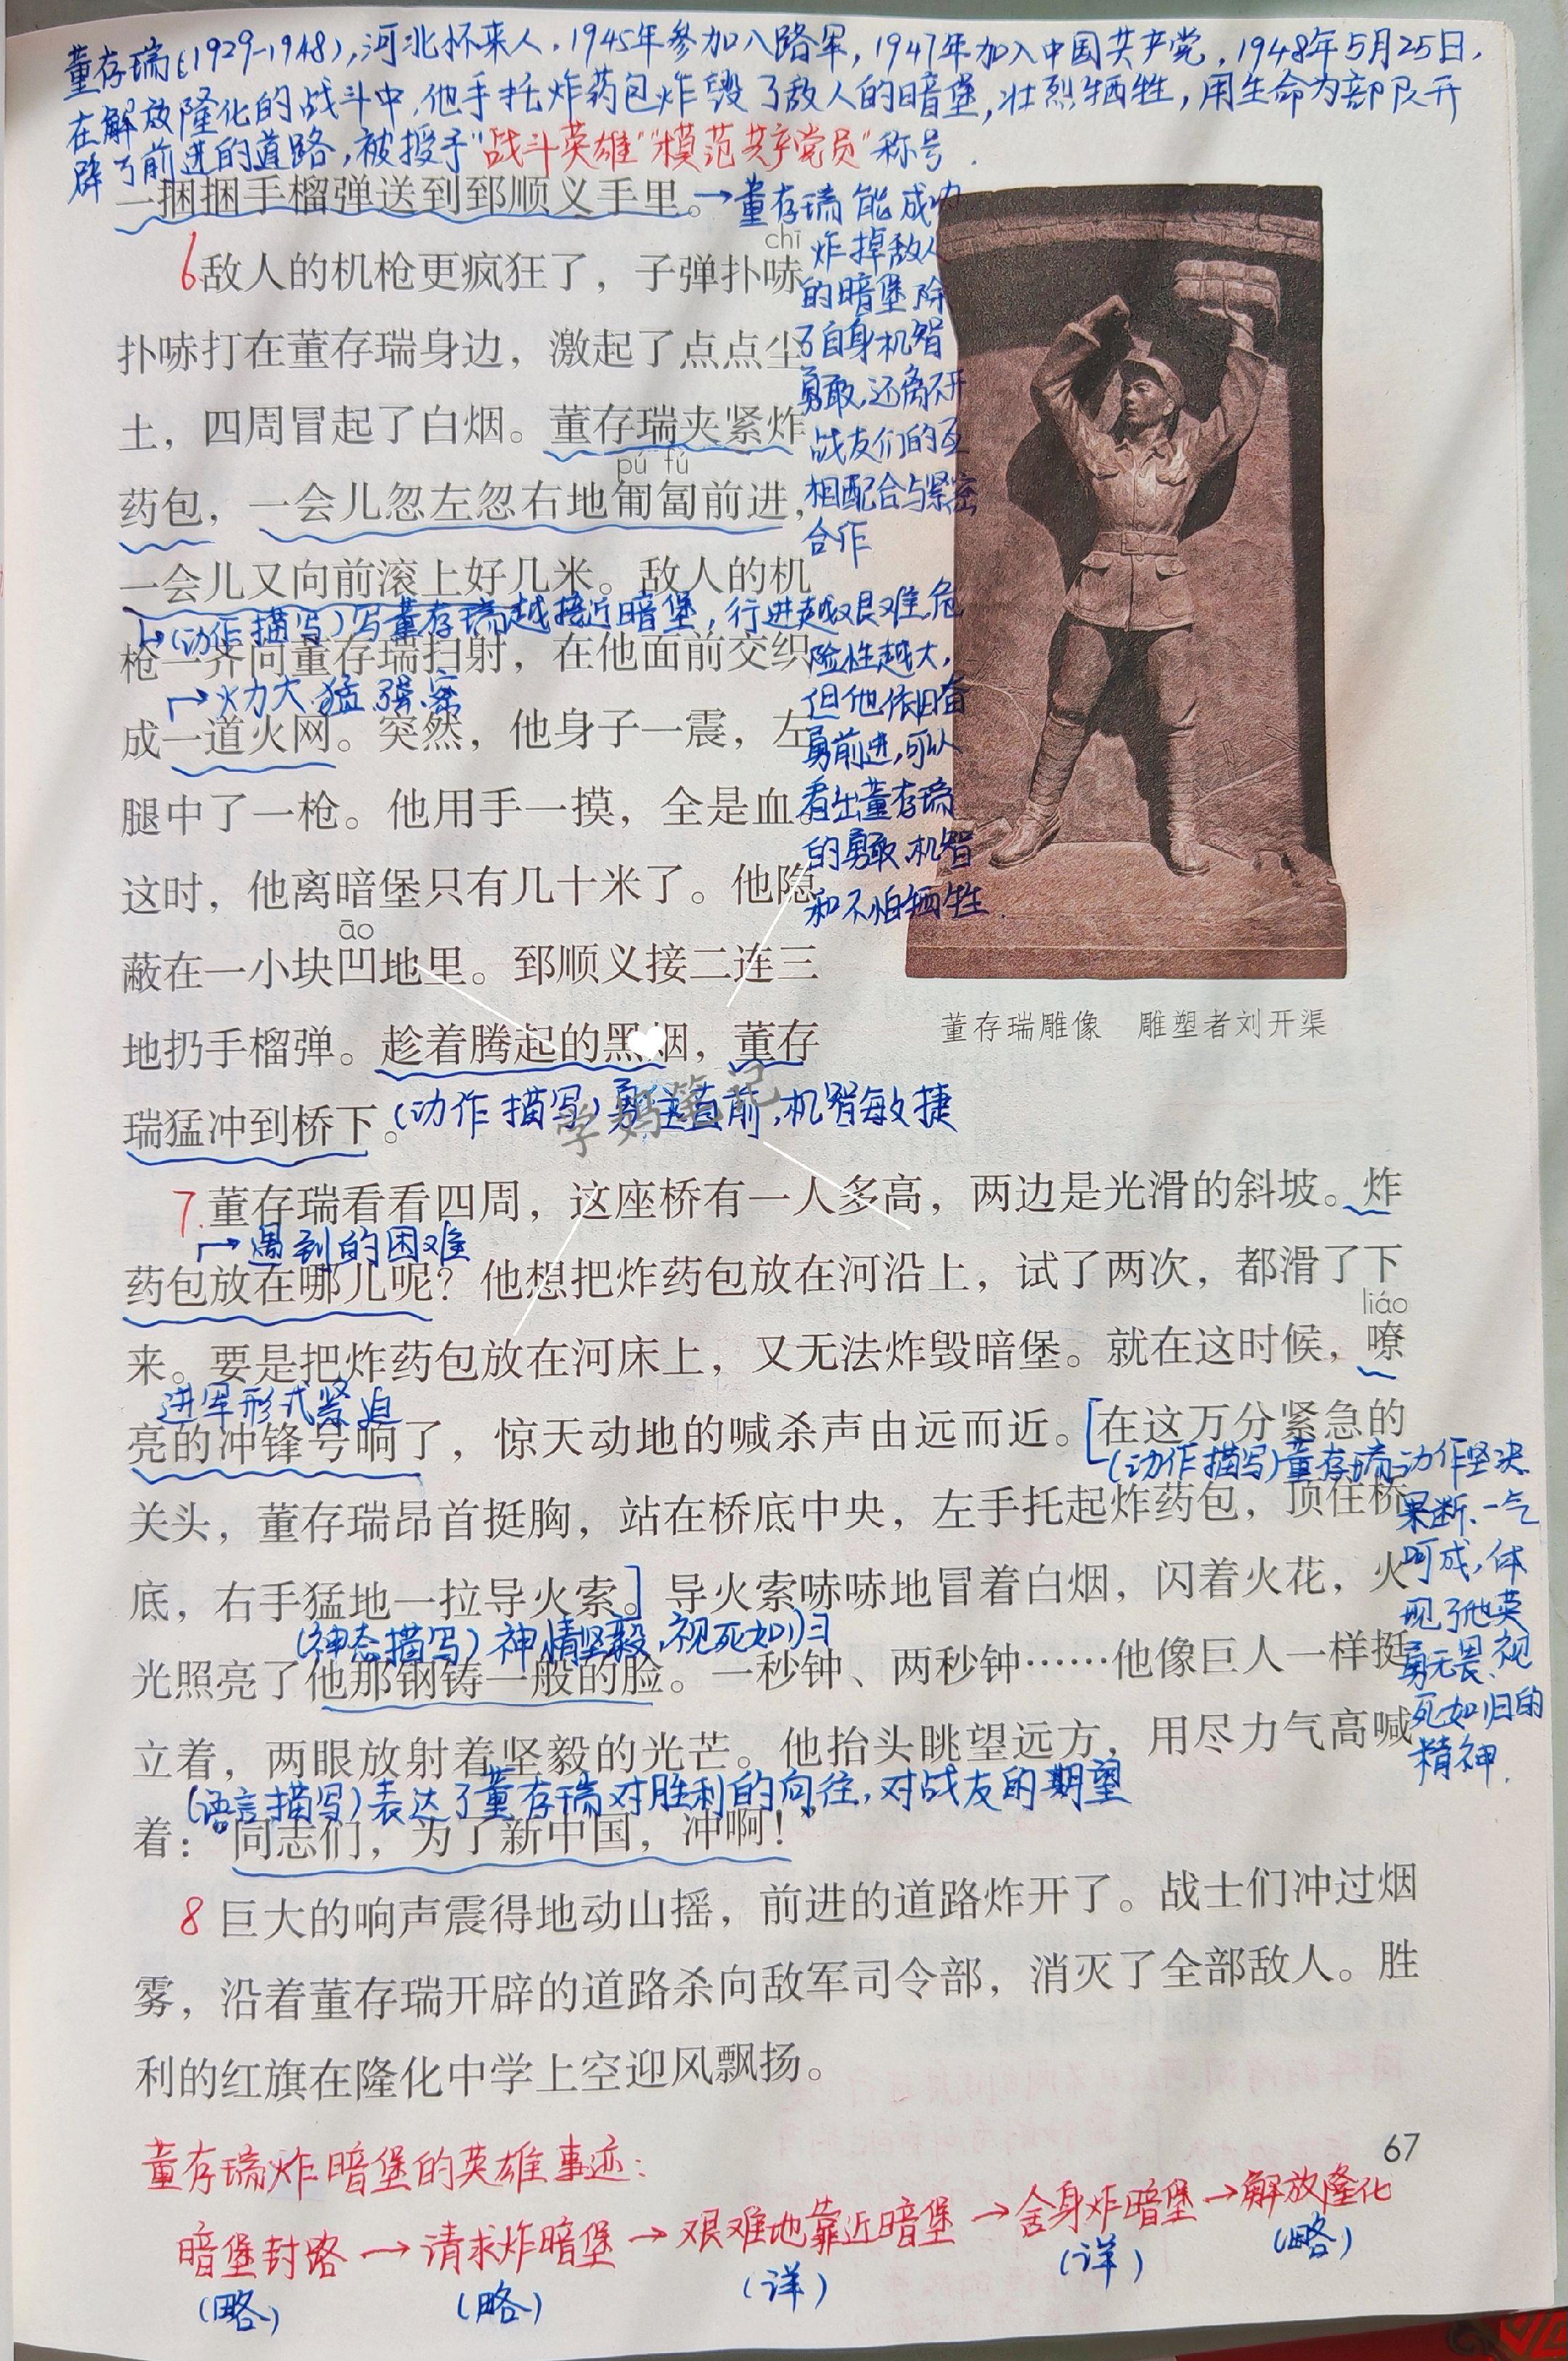 董存瑞(1929-1948),河北怀来人.1945年参加八路军,1947年加入中国共产党,1948年5月25日,
在解放隆化的战斗中,他手托炸药包炸毁了敌人的暗堡,壮烈牺牲,用生命为部队开
辟了前进的道路,被授予"战斗英雄""模范共产党员"称号.
一捆捆手榴弹送到郅顺义手里。
→董存瑞能成功
炸掉敌人
的暗堡除
了自身机智
勇敢,还离不开
战友们的互
相配合与紧密
合作
chī
6敌人的机枪更疯狂了，子弹扑哧
扑哧打在董存瑞身边，激起了点点尘
土，四周冒起了白烟。董存瑞夹紧炸
pú fú
药包，一会儿忽左忽右地匍匐前进，
一会儿又向前滚上好几米。敌人的机
↳(动作描写)写董存瑞越接近暗堡,行进越艰难危
险性越大,
但他依旧奋
勇前进,可以
看出董存瑞
的勇敢、机智
和不怕牺牲.
枪一齐向董存瑞扫射，在他面前交织
→火力大、猛、强、密
成一道火网。突然，他身子一震，左
腿中了一枪。他用手一摸，全是血。
这时，他离暗堡只有几十米了。他隐
āo
蔽在一小块凹地里。郅顺义接二连三
地扔手榴弹。趁着腾起的黑烟，董存
瑞猛冲到桥下。
(动作描写)勇往直前,机智敏捷
学妈笔记
董存瑞雕像 雕塑者刘开渠
7.董存瑞看看四周，这座桥有一人多高，两边是光滑的斜坡。炸
→遇到的困难
药包放在哪儿呢？他想把炸药包放在河沿上，试了两次，都滑了下
liáo
来。要是把炸药包放在河床上，又无法炸毁暗堡。就在这时候，嘹
进军形式紧迫
亮的冲锋号响了，惊天动地的喊杀声由远而近。[在这万分紧急的
(动作描写)董存瑞动作坚决
果断、一气
呵成,体
现了他英
勇无畏、视
死如归的
精神.
关头，董存瑞昂首挺胸，站在桥底中央，左手托起炸药包，顶住桥
底，右手猛地一拉导火索。]导火索哧哧地冒着白烟，闪着火花，火
(神态描写)神情坚毅,视死如归
光照亮了他那钢铸一般的脸。一秒钟、两秒钟……他像巨人一样挺
立着，两眼放射着坚毅的光芒。他抬头眺望远方，用尽力气高喊
(语言描写)表达了董存瑞对胜利的向往,对战友的期望
着：“同志们，为了新中国，冲啊！”
8巨大的响声震得地动山摇，前进的道路炸开了。战士们冲过烟
雾，沿着董存瑞开辟的道路杀向敌军司令部，消灭了全部敌人。胜
利的红旗在隆化中学上空迎风飘扬。
67
董存瑞炸暗堡的英雄事迹:
暗堡封路→请求炸暗堡→艰难地靠近暗堡→舍身炸暗堡→解放隆化
(略) (略) (详) (详) (略)